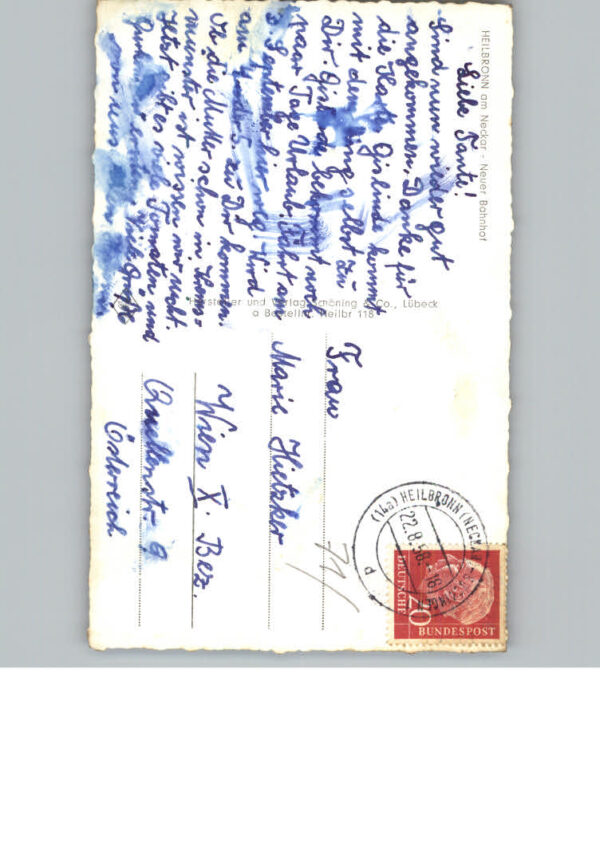 HEILBRONN am Neckar - Neuer Bahnhof
Liebe Tante!
Sind nun wieder gut
angekommen. Danke für
die Karte. Gislinde kommt
mit dem selbst zu
Dir. bekommt noch
paar Tage Urlaub. Fährt am
3. September hier Wird
am zu Dir kommen.
Ob die Mutter schon in
münster ist wissen wir nicht.
Jetzt gibt es viel und
Hersteller und Verlag Schöning & Co., Lübeck
Bestell Nr. Heilbr 118
Frau
Marie
Wien X. Bez.
Quellenstr. 9
Österreich
71/
(14a) HEILBRONN (NECKAR)
22.8.58. - 18
P
DEUTSCHE
BUNDESPOST
20